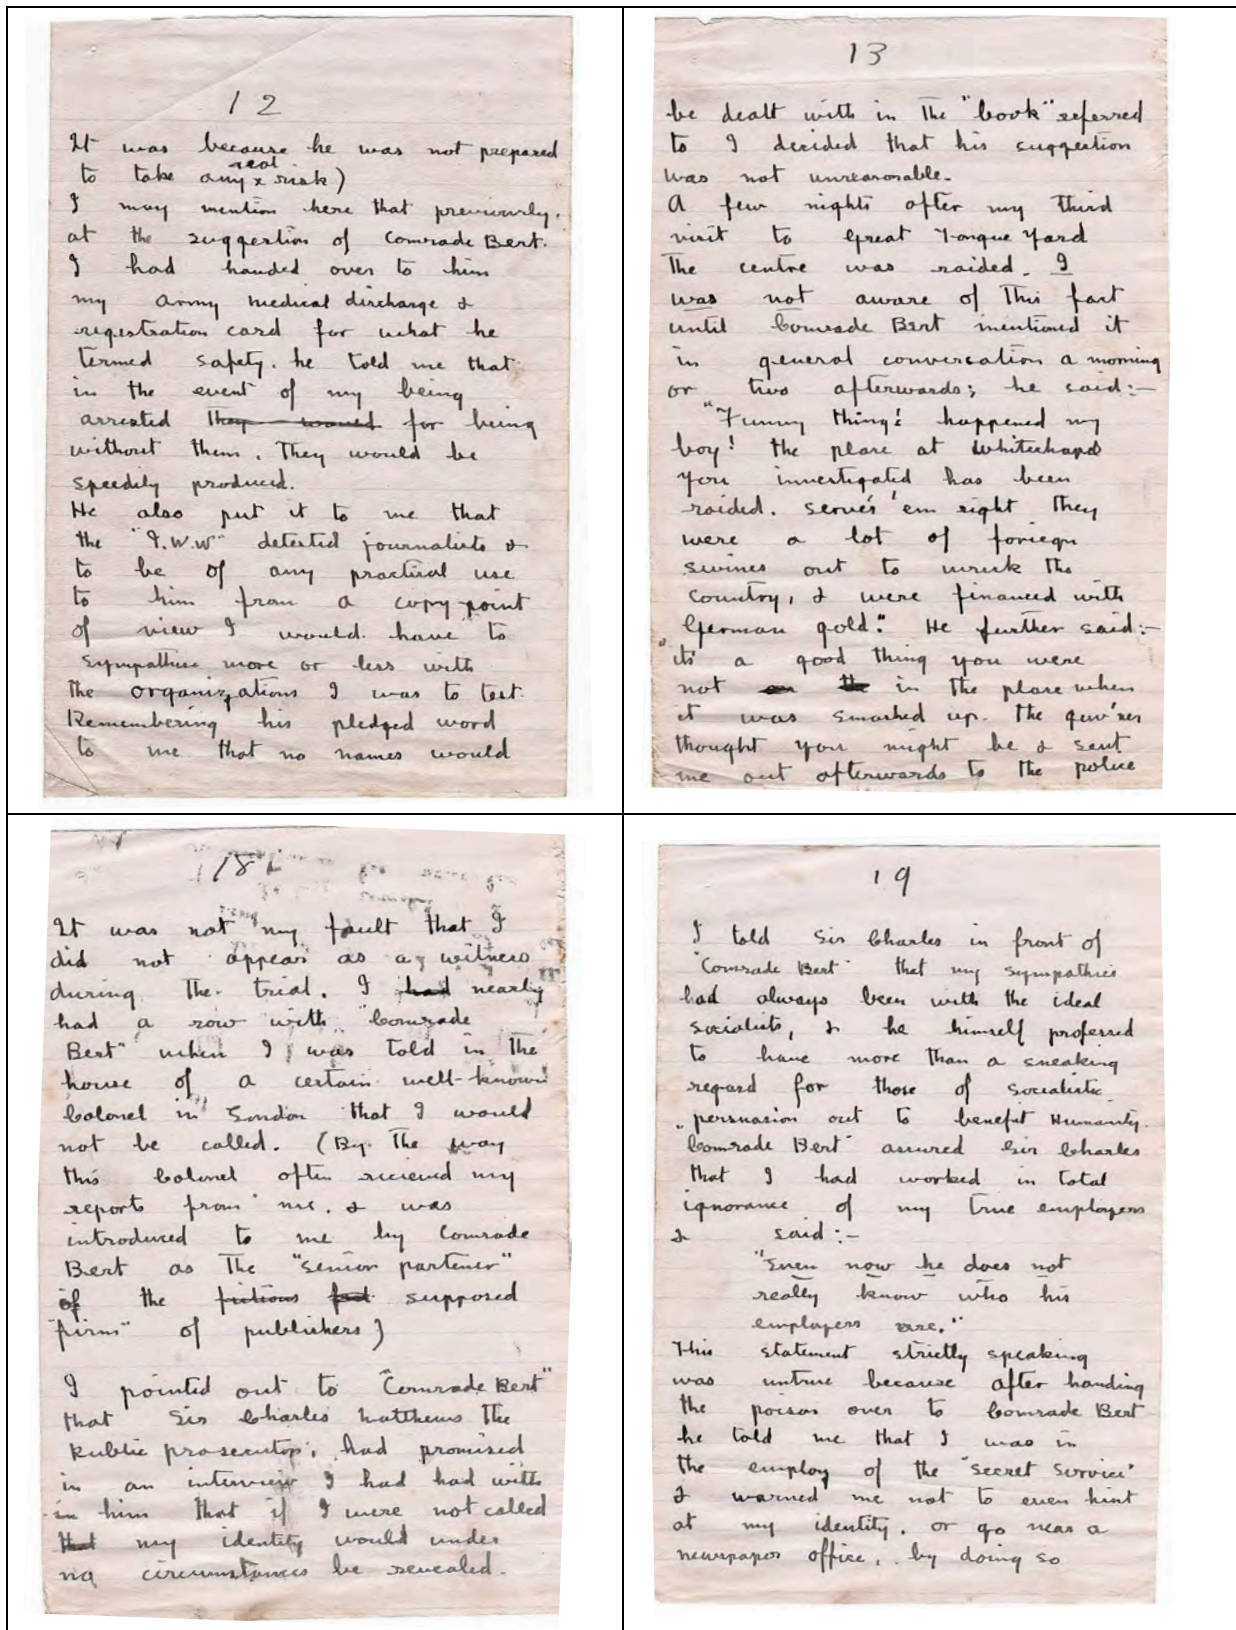 12
It was because he was not prepared
real
to take any x risk)
I may mention here that previously.
at the suggestion of Comrade Bert.
I had handed over to him
my army medical discharge &
registration card for what he
termed safety. he told me that
in the event of my being
arrested they would for being
without them. They would be
speedily produced.
He also put it to me that
the "I.W.W" detected journalists &
to be of any practical use
to him from a copy-point
of view I would have to
sympathise more or less with
the organizations I was to test.
Remembering his pledged word
to me that no names would
13
be dealt with in the "book" referred
to I decided that his suggestion
was not unreasonable.
A few nights after my third
visit to Great Tongue Yard
the centre was raided. I
was not aware of this fact
until Comrade Bert mentioned it
in general conversation a morning
or two afterwards; he said:-
"Funny thing! happened my
boy! the place at Whitechapel
you investigated has been
raided. serves 'em right they
were a lot of foriegn
swines out to wreck the
country, & were financed with
German gold." He further said:-
"its a good thing you were
not on the in the place when
it was smashed up. the guv'ner
thought you might be & sent
me out afterwards to the police
18
It was not my fault that I
did not appear as a witness
during the trial. I had nearly
had a row with "Comrade
Bert" when I was told in the
house of a certain well-known
Colonel in London that I would
not be called. (By the way
this Colonel often recieved my
reports from me. & was
introduced to me by Comrade
Bert as the "senior partener"
of the fictious supposed
"firm" of publishers)
I pointed out to "Comrade Bert"
that Sir Charles Matthews the
Public prosecutor, had promised
in an interview I had had with
in him that if I were not called
that my identity would under
no circumstances be revealed.
19
I told Sir Charles in front of
"Comrade Bert" that my sympathies
had always been with the ideal
socialists, & he himself proferred
to have more than a sneaking
regard for those of socialistic
persuasion out to benefit Humanity.
"Comrade Bert" assured Sir Charles
that I had worked in total
ignorance of my true employers
& said:-
"Even now he does not
really know who his
employers are."
This statement strictly speaking
was untrue because after handing
the poison over to Comrade Bert
he told me that I was in
the employ of the "Secret Service"
& warned me not to even hint
at my identity. or go near a
newspaper office, by doing so